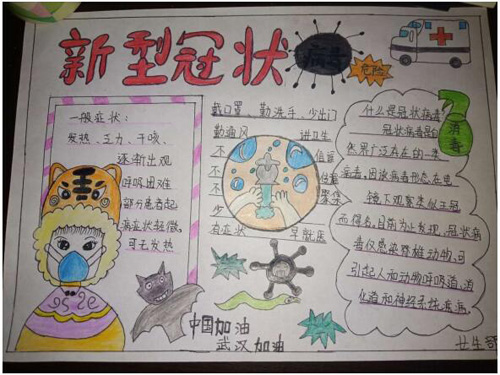 新型冠状病毒
危险
一般症状：
发热、乏力、干咳、
逐渐出现
呼吸困难
部分患者起
病症状轻微,
可无发热
戴口罩、勤洗手、少出门
勤通风 讲卫生
不 信谣
不 传谣
不 聚集
少
有症状 早就医
什么是冠状病毒
冠状病毒是自
然界广泛存在的一类
病毒,因该病毒形态在电
镜下观察类似王冠
而得名,目前为止发现,冠状病
毒仅感染脊椎动物,可
引起人和动物呼吸道、消
化道和神经系统疾病.
消毒
中国加油
武汉加油